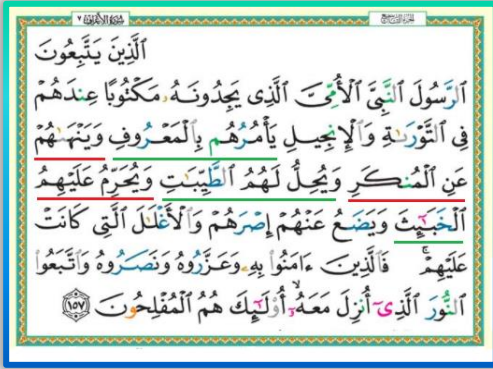 سُورَةُ الْأَعْرَافِ ٧
ٱلَّذِينَ يَتَّبِعُونَ
ٱلرَّسُولَ ٱلنَّبِىَّ ٱلْأُمِّىَّ ٱلَّذِى يَجِدُونَهُۥ مَكْتُوبًا عِندَهُمْ
فِى ٱلتَّوْرَىٰةِ وَٱلْإِنجِيلِ يَأْمُرُهُم بِٱلْمَعْرُوفِ وَيَنْهَىٰهُمْ
عَنِ ٱلْمُنكَرِ وَيُحِلُّ لَهُمُ ٱلطَّيِّبَٰتِ وَيُحَرِّمُ عَلَيْهِمُ
ٱلْخَبَٰٓئِثَ وَيَضَعُ عَنْهُمْ إِصْرَهُمْ وَٱلْأَغْلَٰلَ ٱلَّتِى كَانَتْ
عَلَيْهِمْ ۚ فَٱلَّذِينَ ءَامَنُوا۟ بِهِۦ وَعَزَّرُوهُ وَنَصَرُوهُ وَٱتَّبَعُوا۟
ٱلنُّورَ ٱلَّذِىٓ أُنزِلَ مَعَهُۥٓ ۙ أُو۟لَٰٓئِكَ هُمُ ٱلْمُفْلِحُونَ ١٥٧